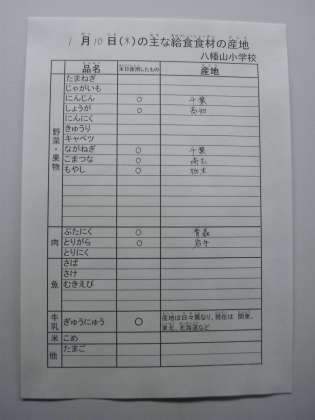 1月10日(木)の主な給食食材の産地
八幡山小学校
品名 本日使用したもの 産地
野菜・果物
たまねぎ
じゃがいも
にんじん ○ 千葉
しょうが ○ 高知
にんにく
きゅうり
キャベツ
ながねぎ ○ 千葉
こまつな ○
もやし ○ 栃木
肉
ぶたにく ○ 青森
とりがら ○ 岩手
とりにく
魚
さば
さけ
むきえび
牛乳
ぎゅうにゅう ○ 産地は日々異なり、現在は 関東、
東北、北海道など
米 こめ
他 たまご